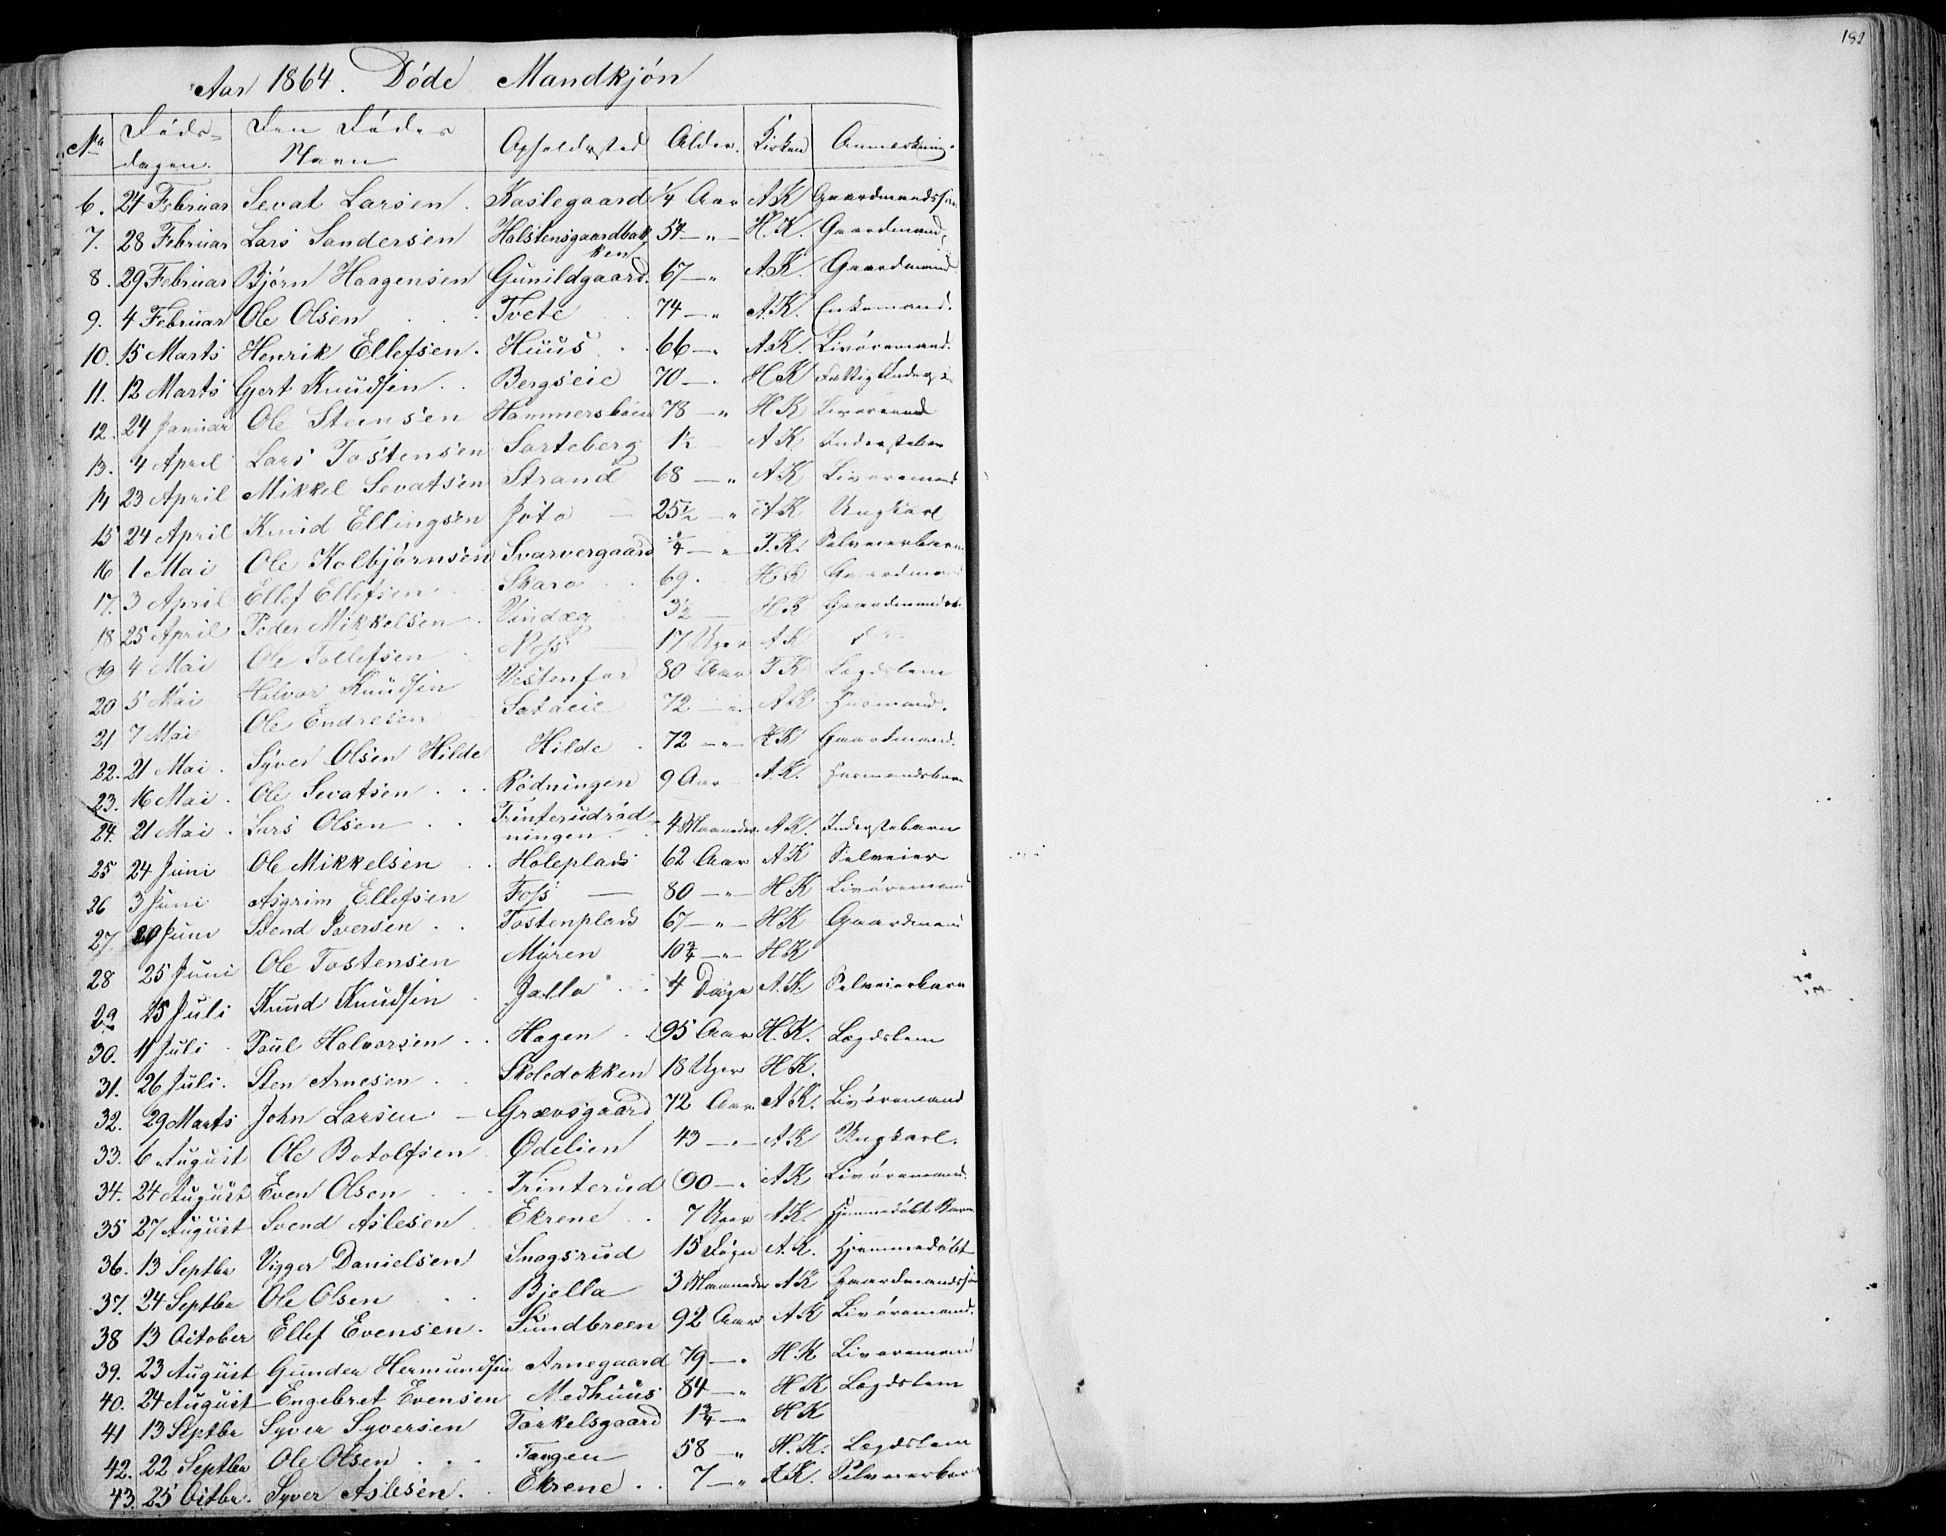 182
Aar 1864. Døde Mandkjøn
No Døds- dagen. Den Dødes Navn Opholdssted Alder. Kirken Anmerkning.
6. 24 Februar Sevat Larsen. Kaslegaard 1/4 Aar A K Gaardmandssøn
7. 28 Februar Lars Sandersen Halstensgaardbak ken 54 — " — H. K. Gaardmand
8. 29 Februar Bjørn Haagensen Gunildgaard. 67 — " A. K. Gaardmand
9. 4 Februar Ole Olsen Tvete 74 — " A. K. Enkemand.
10. 15 Marts Henrik Ellefsen. Huus 66 — " A. K. Livøremand.
11. 12 Marts Gert Knudsen Bergseie 70 — " H K Fattig
12. 24 Januar Ole Steensen Hammersbøen 78 — " H K Livøremand
13. 4 April Lars Tostensen Sarteberg 1½ — A K Inderstebarn
14 23 April Mikkel Sevatsen Strand 68 — " A K Livøremand
15 24 April Knud Ellingsen Jota — 25½ — " A K Ungkarl
16 1 Mai Ole Kolbjørnsen Svarvergaard ¼ — " T. K. Selveierbarn
17. 3 April Ellef Ellefsen Skaro 69. H K Gaardmand
18 25 April Peder Mikkelsen Vindeg 3½ — H K
19 4 Mai Ole Tollefsen Ness 17 Uger A K
20 5 Mai Halvor Knudsen Vestenfor 80 Aar T K Lægdslem
21 7 Mai Ole Endresen 72 — " A K Husmand.
22. 21 Mai. Syver Olsen Hilde Hilde 72 — " — K Gaardmand.
23. 16 Mai. Ole Sevatsen Rødningen 9 Aar A. K. Husmandsbarn
24. 21 Mai. Lars Olsen Trinterudrød- ningen 4 Maaneder A K. Inderstebarn
25 24 Juni Ole Mikkelsen Holeplads 62 Aar A K Selveier
26 3 Juni Asgrim Ellefsen Foss — 80 — " H K Livøremand
27 20 Juni Svend Iversen Tostenplads 67 — " H K Gaardmand
28 25 Juni Ole Tostensen Myren 10¾ — " H K
29 15 Juli Knud Knudsen Jallo 4 Dage A. K. Selveierbarn
30. 11 Juli Poul Halvorsen Hagen 95 Aar H. K. Lægdslem
31. 26 Juli. Sten Arnesen Skoledokken 18 Uger H K.
32. 29 Marts John Larsen — Grævsgaard 72 Aar A K. Livøremand
33. 6 August Ole Botolfsen Ødelien 43 — " — A K Ungkarl.
34. 24 August Even Olsen Trinterud 90 — " A K Livøremand.
35 27 August Svend Aslesen Ekrene 7 Uger A K. Hjemmedøbt Barn
36. 13 Septbr Vigger Danielsen Snogsrud 15 Døgn A. K. Hjemmedøbt
37. 24 Septbr Ole Olsen Bjella 3 Maaneder A K Gaardmandssøn
38 13 Octtober Ellef Evensen. Sundbreen 92 Aar A K Livøremand.
39. 23 August Gunder Hermundsen Arnegaard 79 — " H K Livøremand
40. 24 August Engebret Evensen Medhuus 84 — " H K Lægdslem
41 13 Septbr Syver Syversen Torkelsgaard 1¾ — " H K
42. 22 Septbr Ole Olsen Tangen 58 — " H. K. Lægdslem
43. 25 Octbr. Syver Aslesen. Ekrene 7 — " A K. Selveierbarn